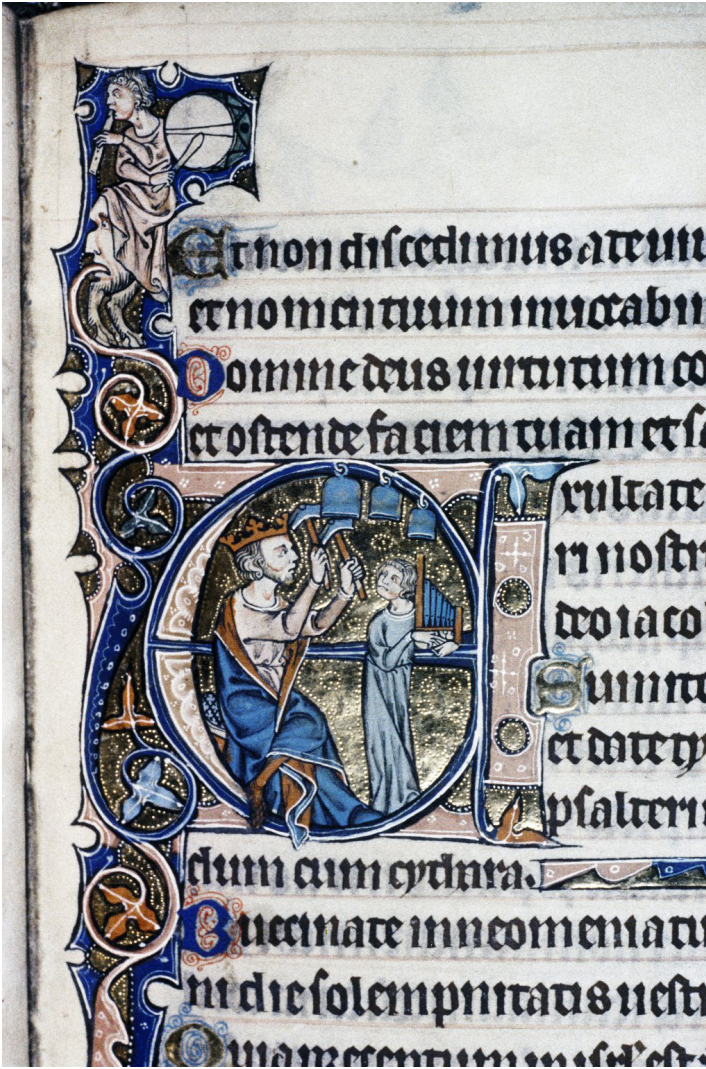 Et non discedimus a te uiui
et nomen tuum inuocabim
Domine deus uirtutum co
et ostende faciem tuam et sa
Exultate
ri nostr
deo iaco
Sumite
et date ty
psalteri
dum cum cythara.
Buccinate in neomenia tu
in die solempnitatis uestr
Quia preceptum in isrl' est